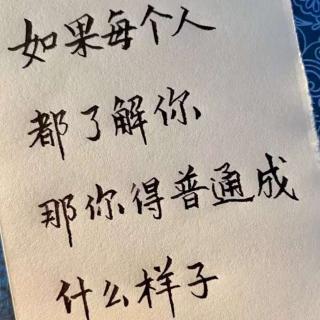 如果每个人
都了解你
那你得普通成
什么样子